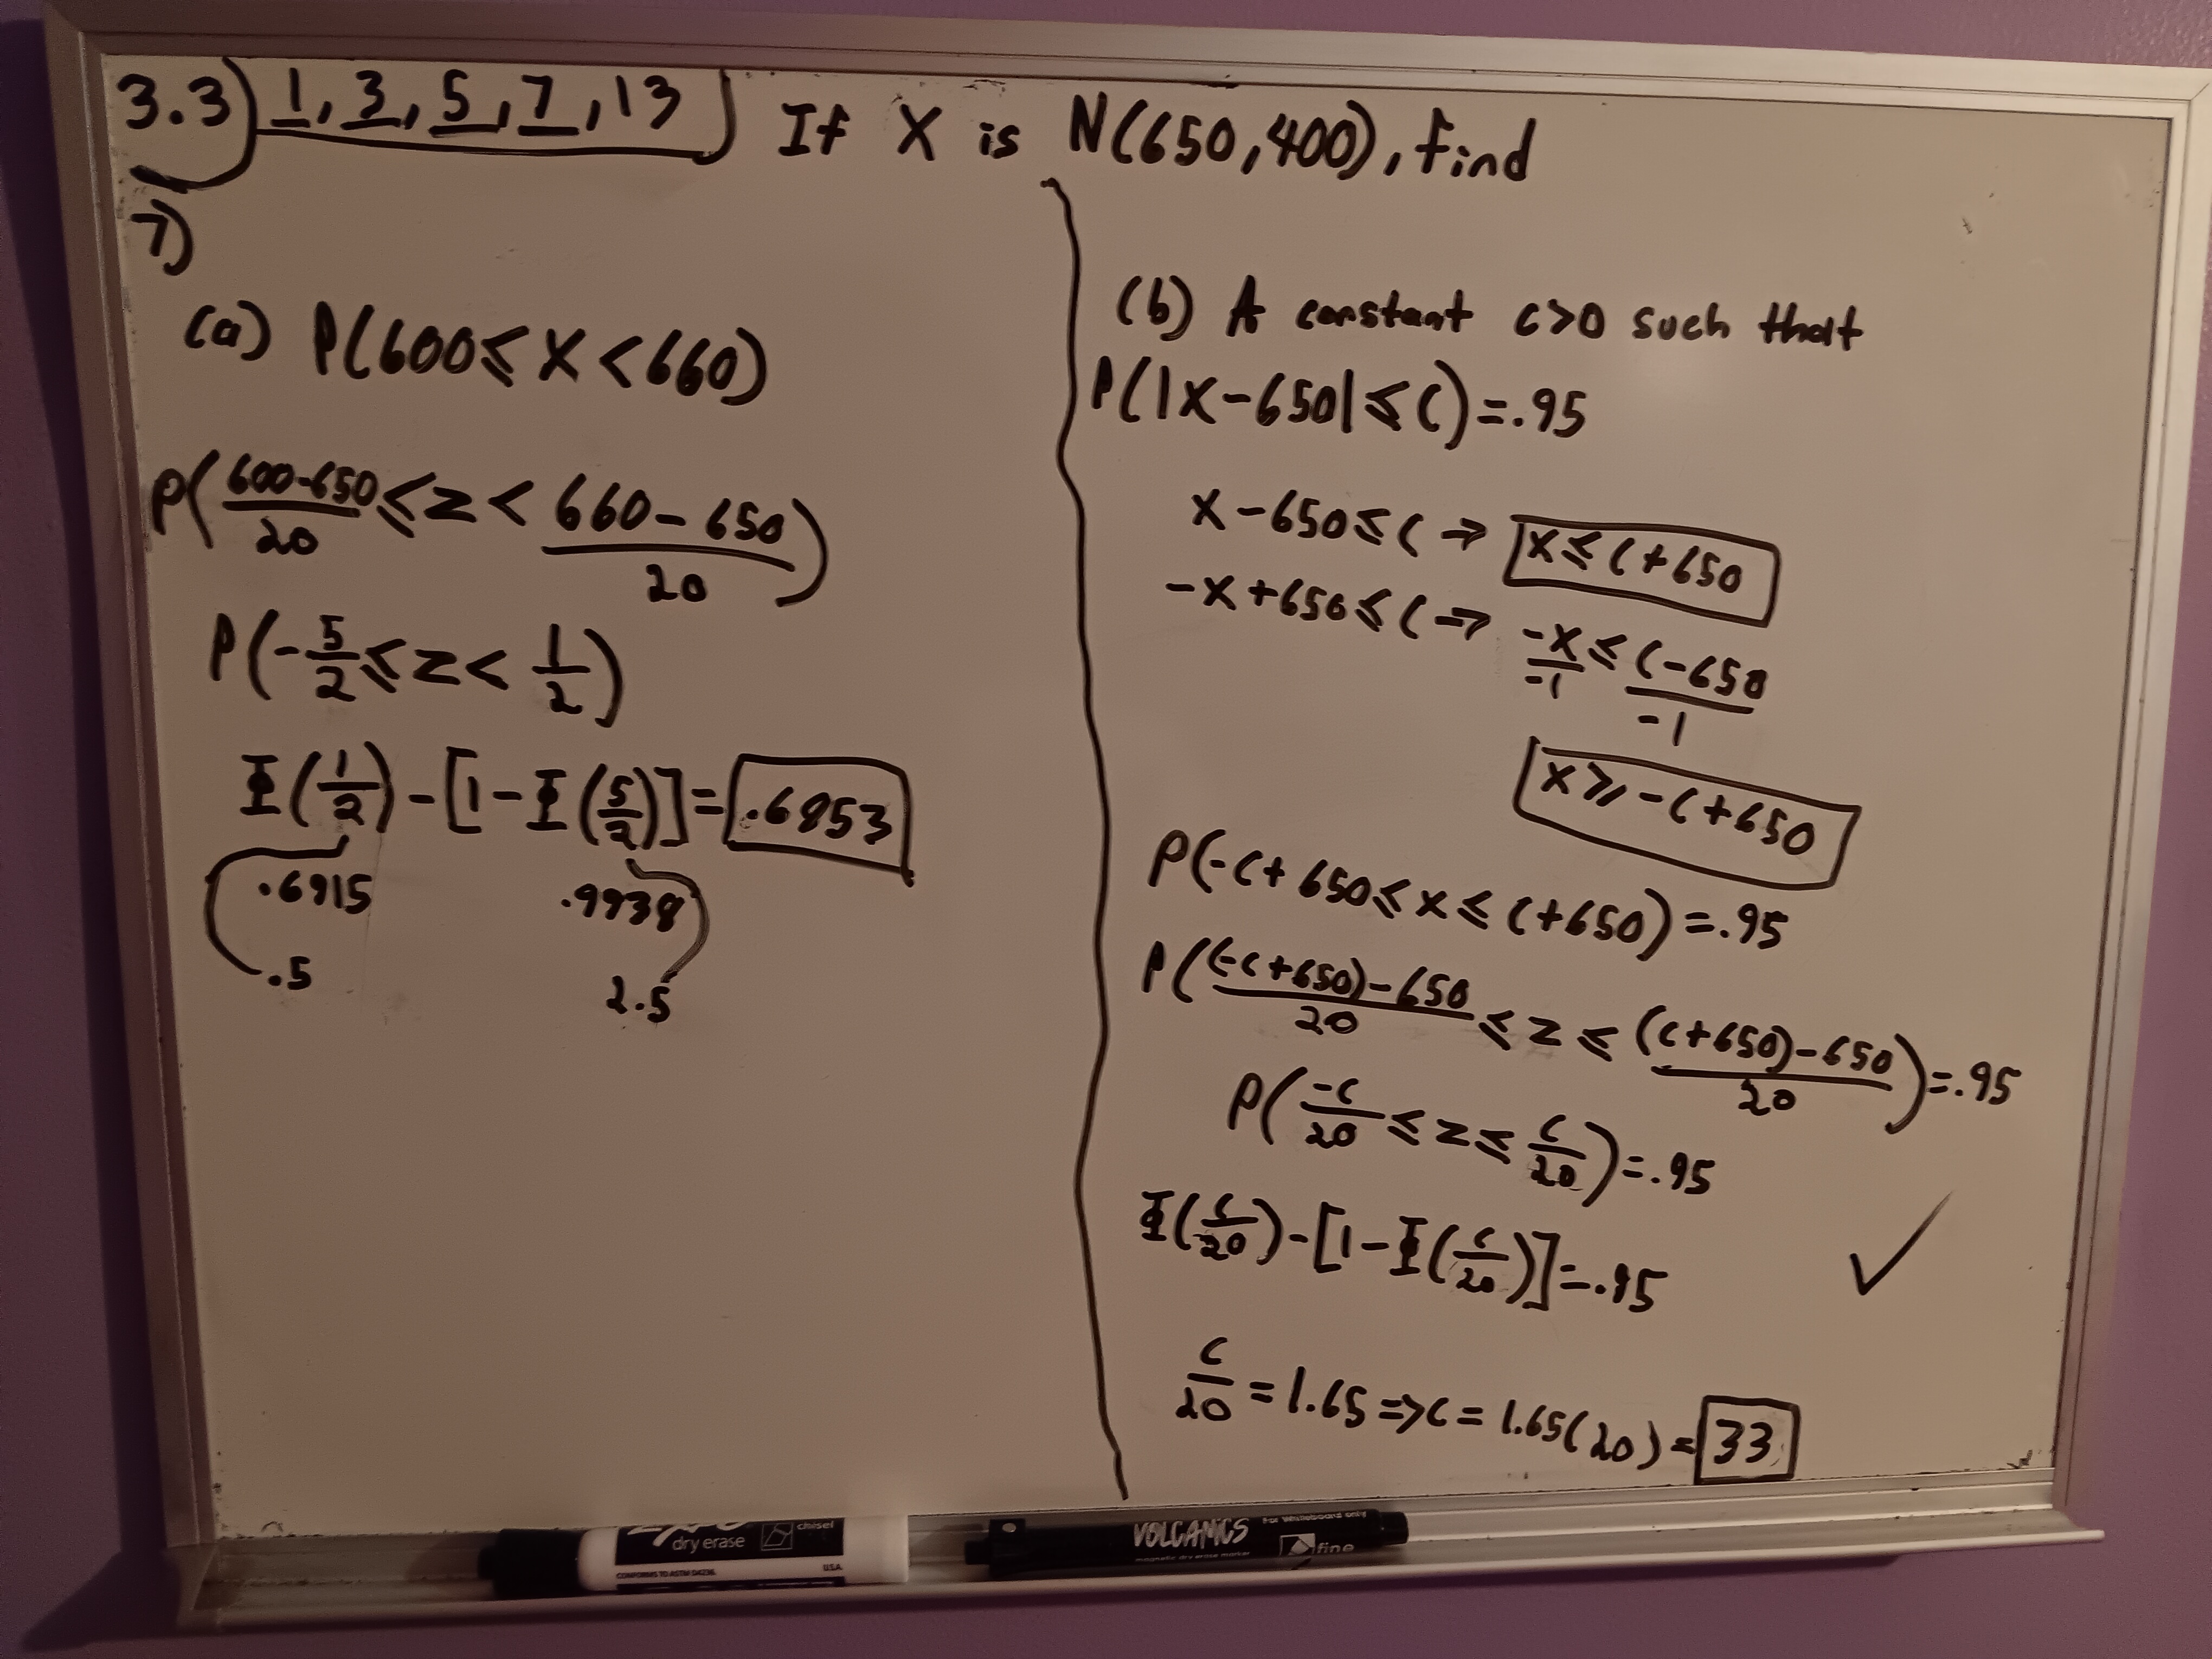 3.3) 1, 3, 5, 7, 13) If X is N(650,400), find
7)
(a) P(600≤X<660)
P(600-650/20 ≤z< 660-650/20)
P(-5/2≤z<1/2)
Φ(1/2)-[1-Φ(5/2)]=.6853
.6915 .9938
.5 2.5
(b) A constant c>0 such that
P(|X-650|≤c)=.95
x-650≤c → x≤c+650
-x+650≤c → -x/-1≤c-650/-1
x≥-c+650
P(-c+650≤x≤c+650)=.95
P((-c+650)-650/20 ≤z≤ (c+650)-650/20)=.95
P(-c/20≤z≤c/20)=.95
Φ(c/20)-[1-Φ(c/20)]=.95 ✓
c/20=1.65⇒c=1.65(20)=33
dry erase
chisel
CONFORMS TO ASTM D4236
U.S.A.
VOLCANICS
magnetic dry erase marker
For Whiteboard only
fine